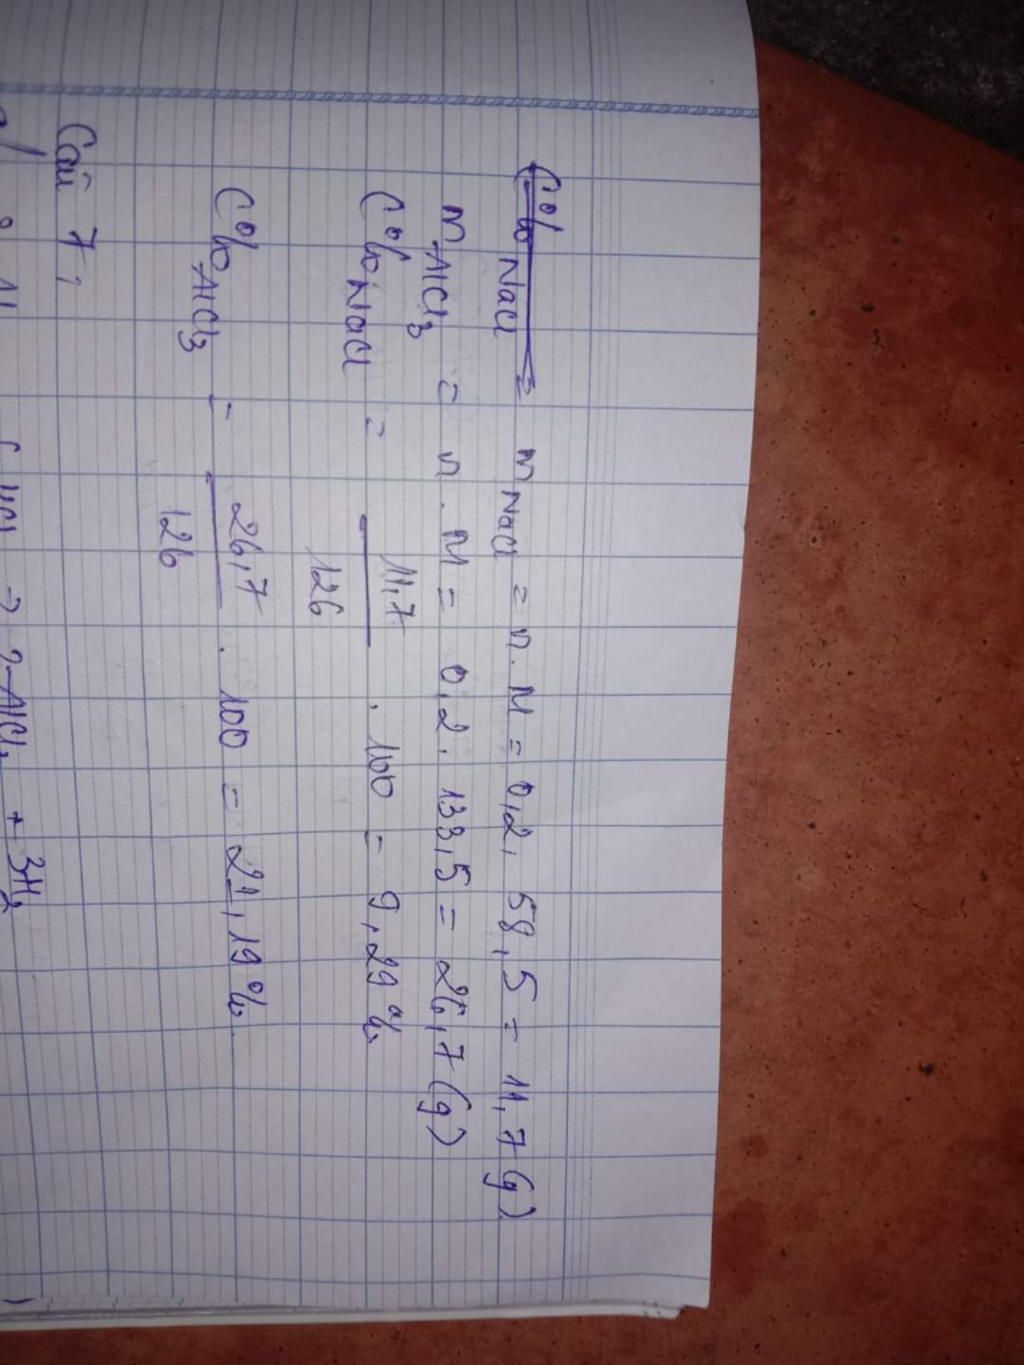 C% NaCl => m NaCl = n. M = 0,2. 58,5 = 11,7 (g)
m AlCl3 = n. M = 0,2. 133,5 = 26,7 (g)
C% NaCl = 11,7/126 . 100 = 9,29%
C% AlCl3 = 26,7/126 . 100 = 21,19%
Câu 7:
HCl → 2AlCl3 + 3H2